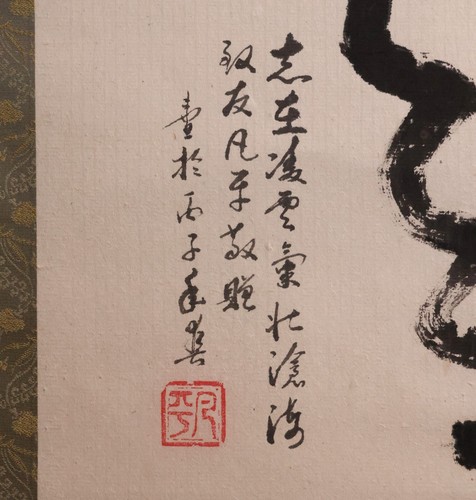 志在凌雲氣壯滄海
致友凡平敬贈
於丙子年